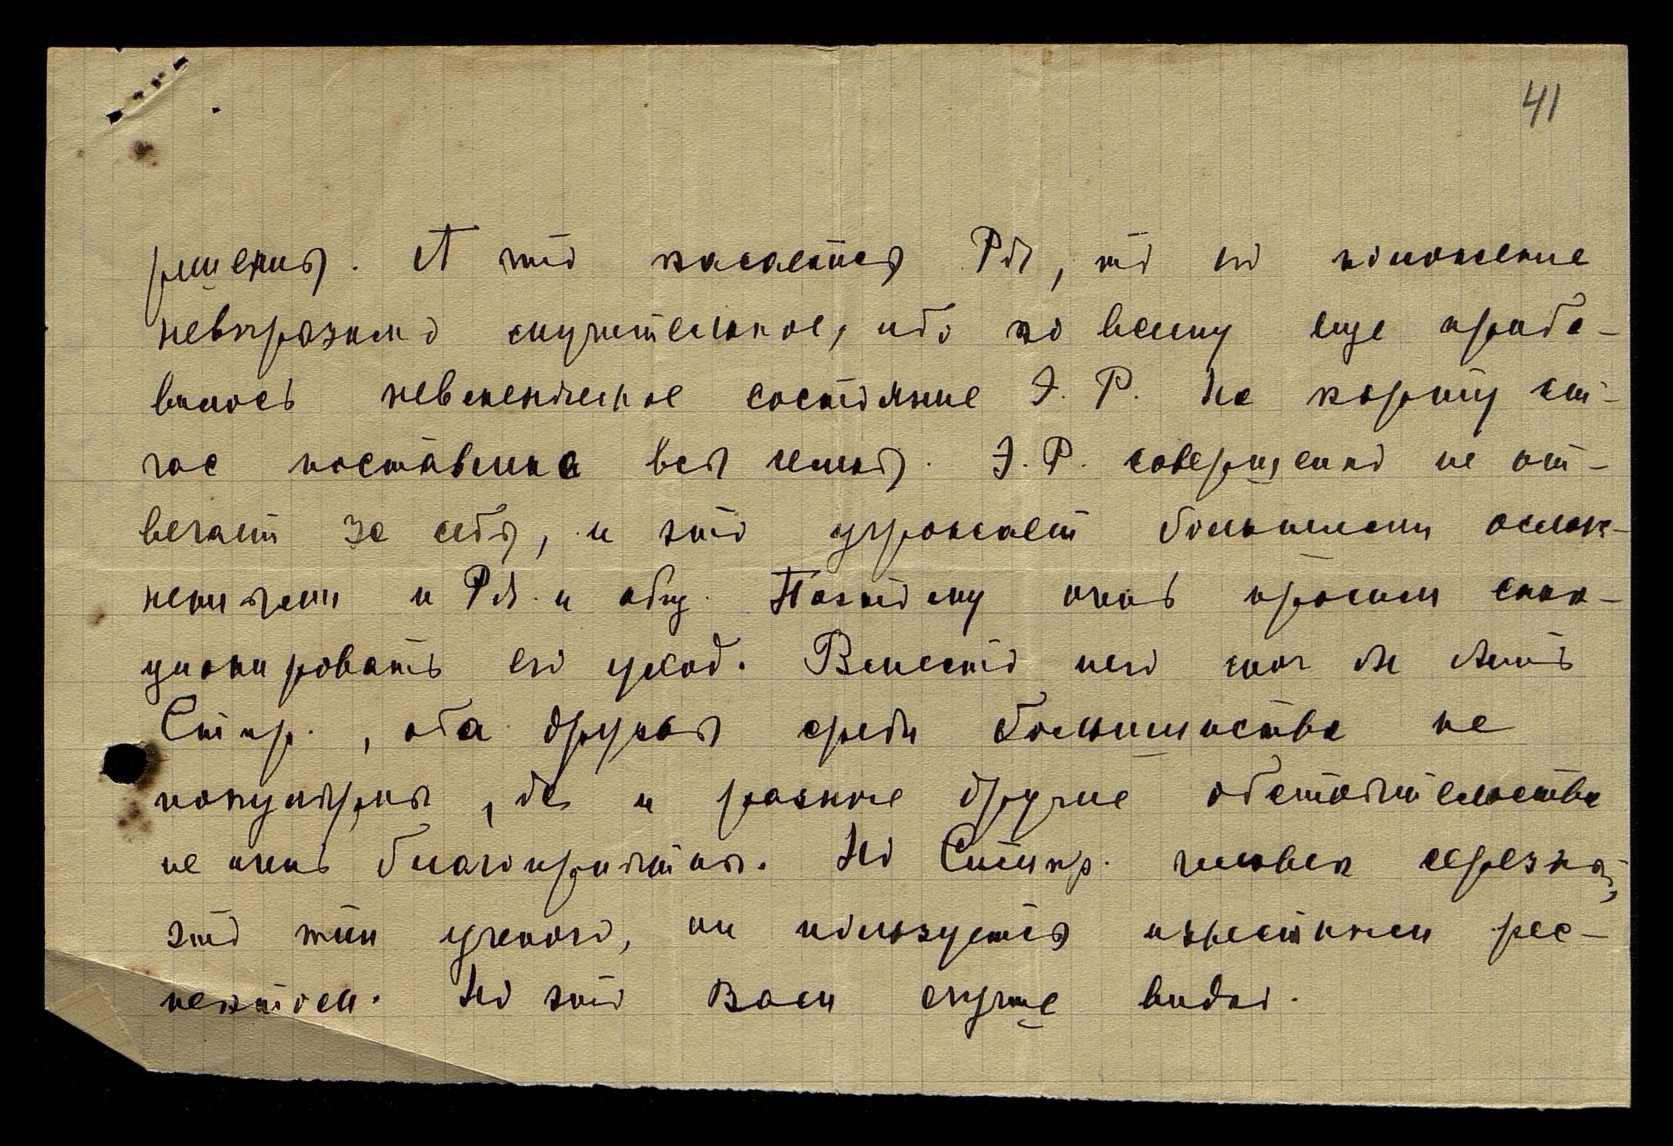 41
решения. А что касается Ря, то его положение
невыразимо мучительное, ибо ко всему еще приба-
вилось невменяемое состояние Э. Р. На карту сей-
час поставлена вся семья. Э. Р. совершенно не от-
вечает за себя, и это угрожает большими ослож-
нениями и Ря и общ. Поэтому очень просим санк-
ционировать его уход. Вместо него мог бы быть
Стпр., оба друзья среди большинства не
популярны, да и разные другие обстоятельства
не очень благоприятны. Но Стпр. человек серезный,
это тип ученого, он пользуется известным рес-
пектом. Но это Вам лучше видно.